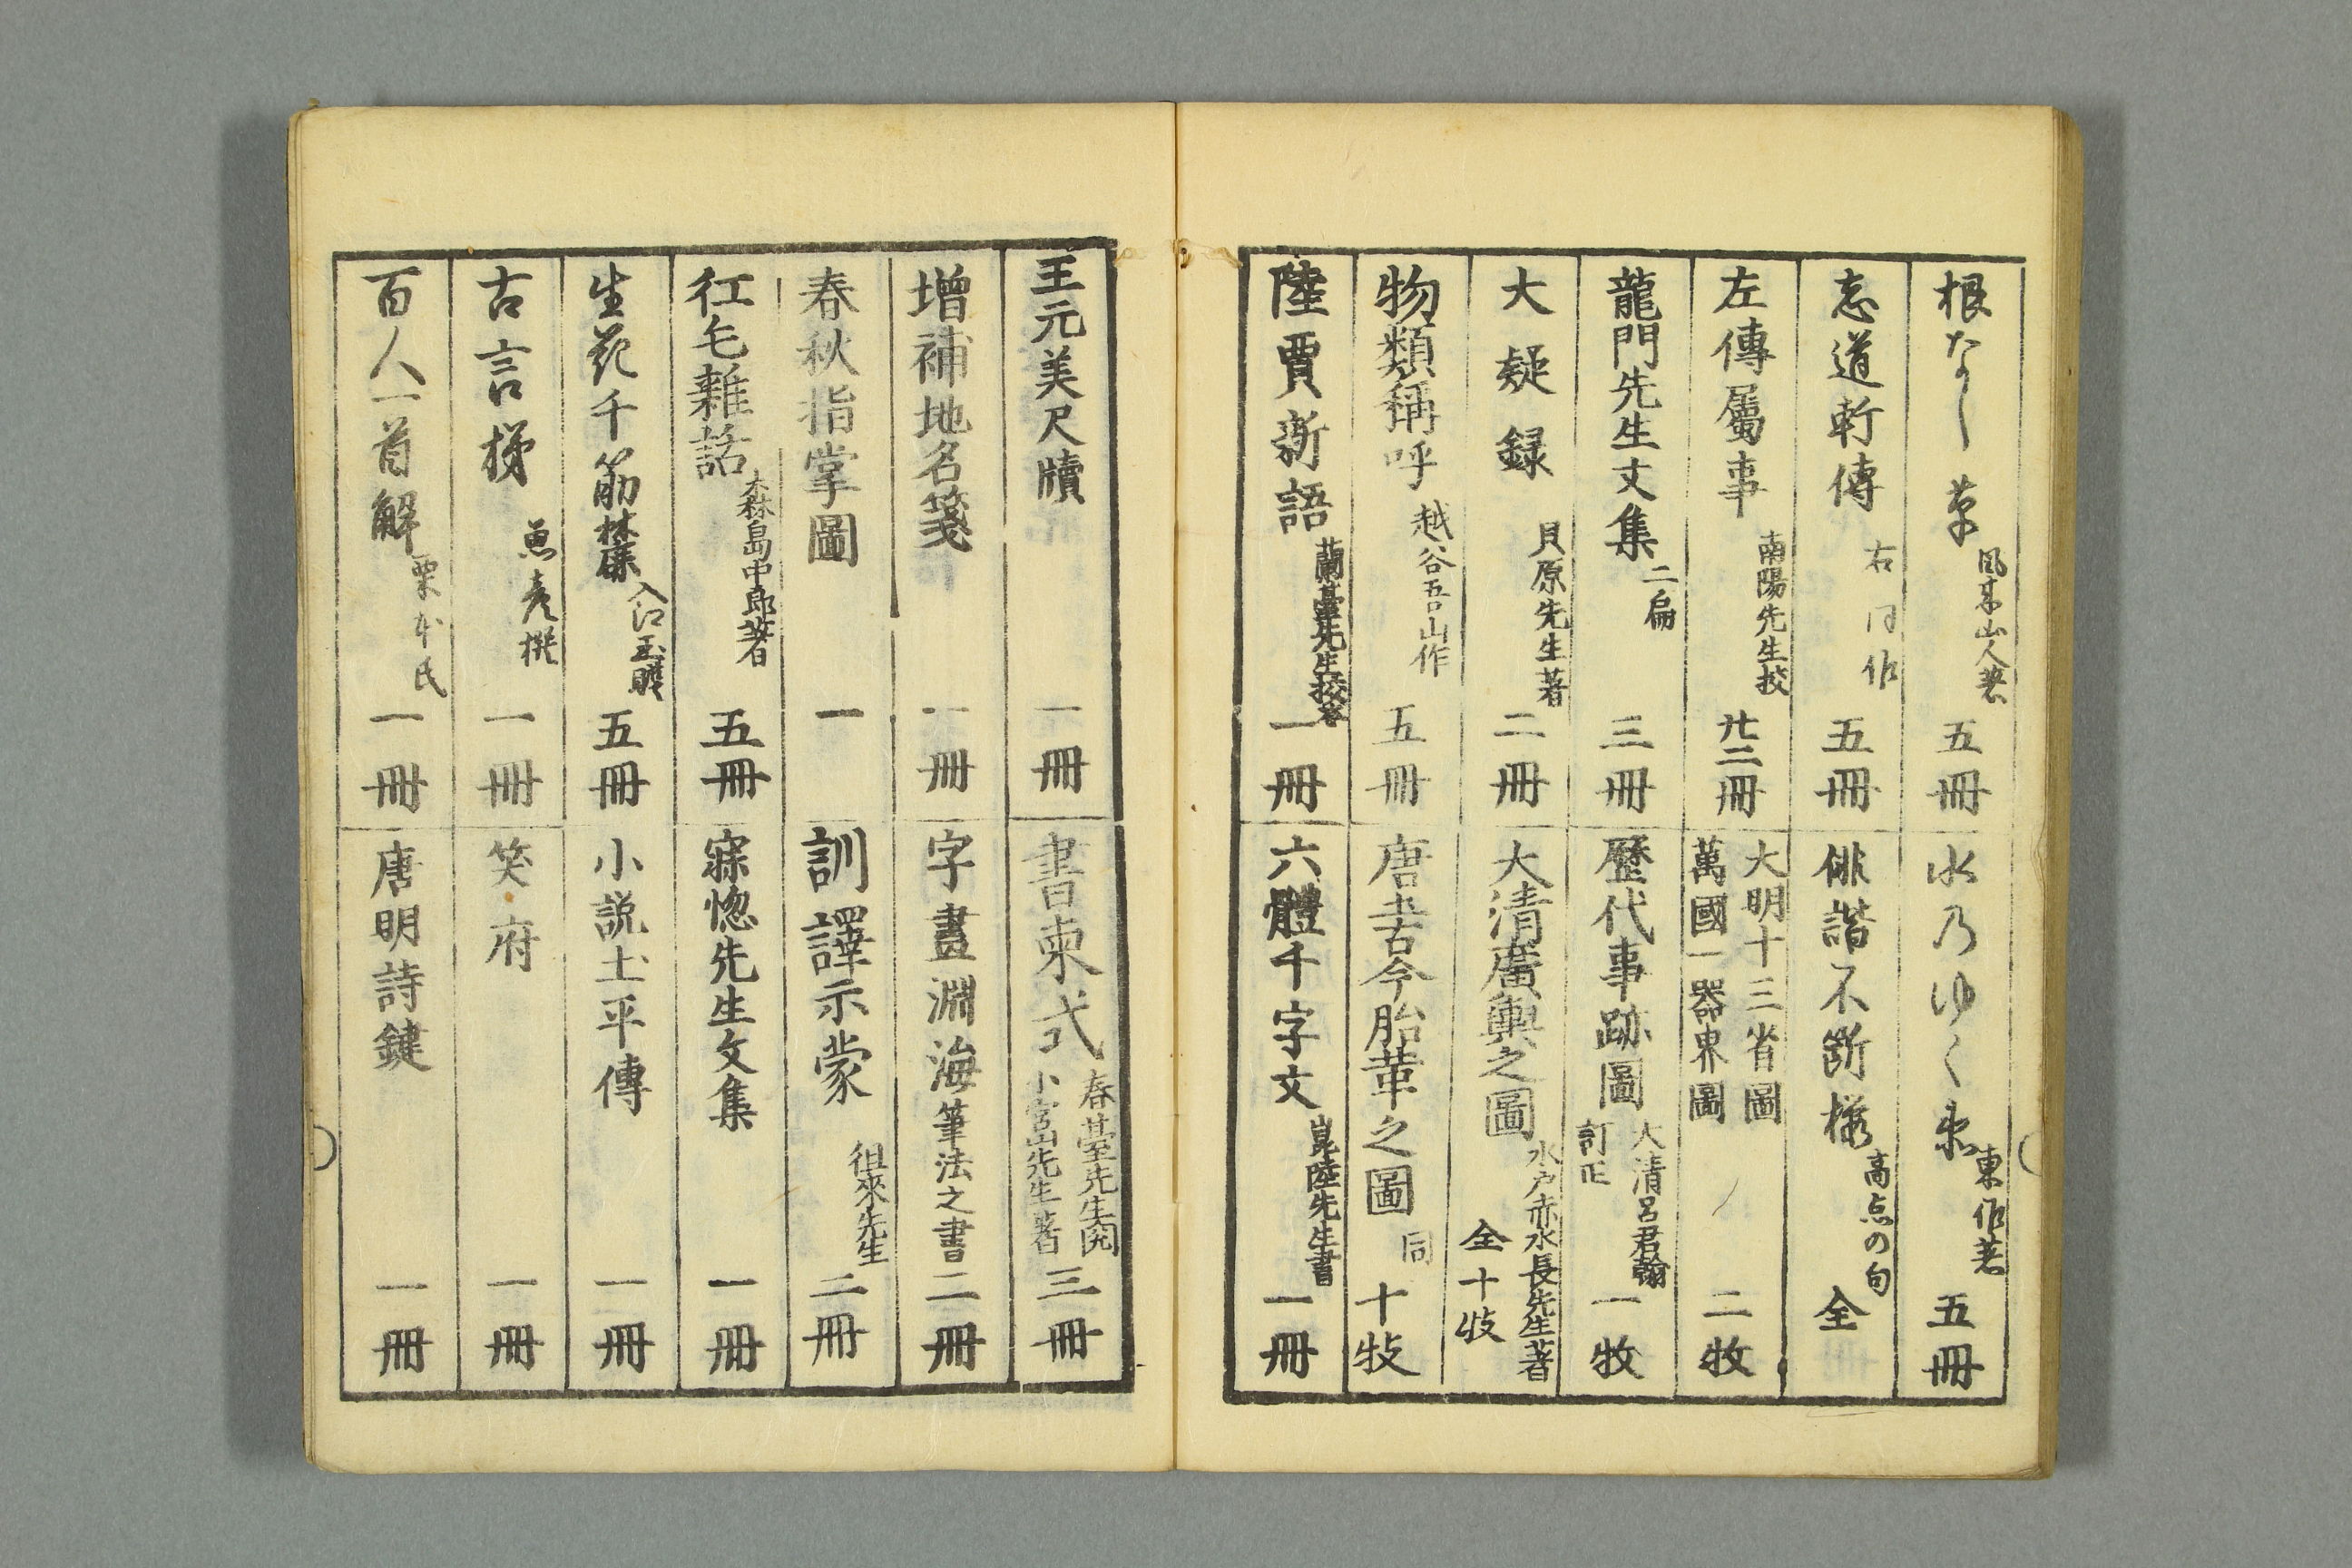 根なし草 風来山人著 五冊
志道軒傳 右同作 五冊
左傳屬事 南陽先生校 廿二冊
龍門先生文集 二扁 三冊
大疑録 貝原先生著 二冊
物類稱呼 越谷吾山作 五冊
陸賈新語 蘭臺先生挍 一冊
水乃ゆくゑ 東作著 五冊
俳諧不断桜 高点の句 全
大明十三省圖
萬國一器界圖 二牧
歷代事跡圖 大清呂君翰訂正 一牧
大清廣輿之圖 水戸赤水長先生著 全十牧
唐土古今沿革之圖 同 十牧
六體千字文 嵐陸先生書 一冊
王元美尺牘 一冊
増補地名箋 一冊
春秋指掌圖 一
紅毛雜話 森島中郎著 五冊
生花千筋麓 入江玉蟾 五冊
古言梯 魚彦撰 一冊
百人一首解 栗本氏 一冊
書柬式 春臺先生閲 小宮山先生著 三冊
字畫淵海 筆法之書 二冊
訓譯示蒙 徂來先生 二冊
寐惚先生文集 一冊
小説土平傳 一冊
笑府 一冊
唐明詩鍵 一冊